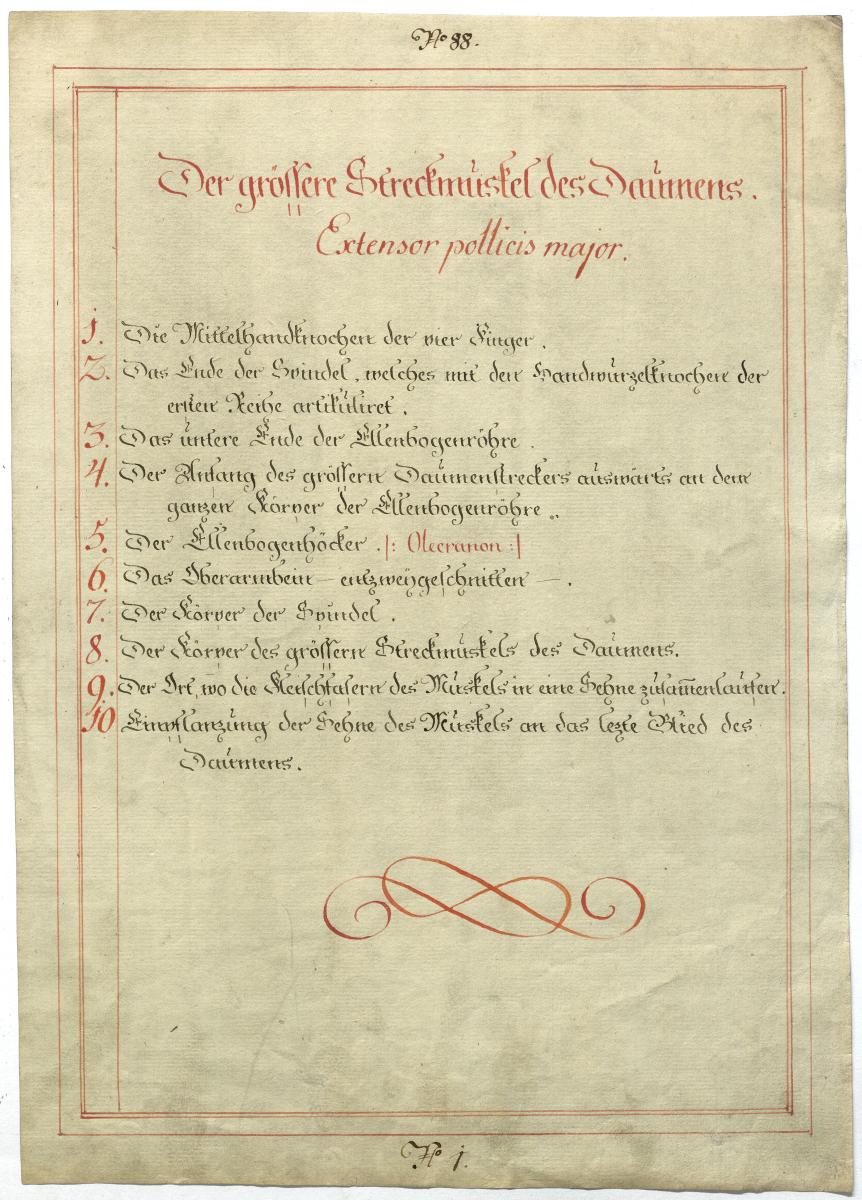 No 88.
Der grössere Streckmuskel des Daumens.
Extensor pollicis major.
1. Die Mittelhandknochen der vier Finger.
2. Das Ende der Spindel, welches mit den Handwurzelknochen der
ersten Reihe artikuliret.
3. Das untere Ende der Ellenbogenröhre.
4. Der Anfang des grössern Daumenstreckers auswärts an dem
ganzen Körper der Ellenbogenröhre.
5. Der Ellenbogenhöcker. |: Olecranon :|
6. Das Oberarmbein – entzweygeschnitten –.
7. Der Körper der Spindel.
8. Der Körper des grössern Streckmuskels des Daumens.
9. Der Ort, wo die Fleischfasern des Muskels in eine Sehne zusam̅enlaufen.
10 Einpflanzung der Sehne des Muskels an das lezte Glied des
Daumens.
No 1.